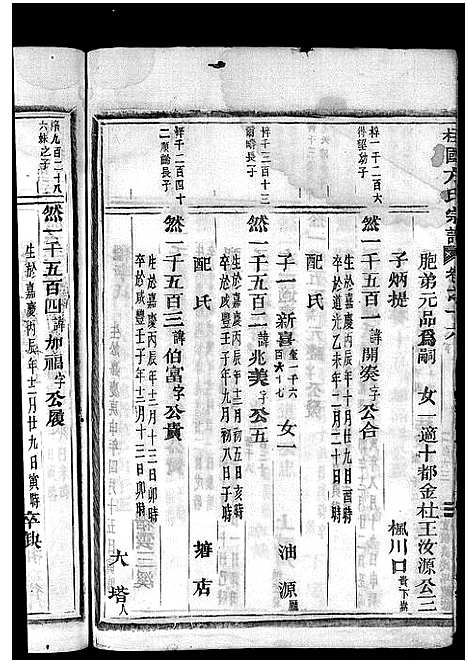 柱國方氏宗譜
胞弟元品爲嗣 女一適十都金杜王汝源公三
子炳提 楓川口
梓一千二百六
得望幼子
然一千五百一 諱開奏字公合
生於嘉慶丙辰年十月
卒於道光乙未年二月
配氏
子一新喜 女一 油源
梓千二百十三
然一千五百二 諱兆美字公五
生於嘉慶丙辰年十一月初五日亥時
卒於咸豐壬子年九月初八日子時
配氏 塘店
梓千二百四十
二 長子
然一千五百三 諱伯富字公貴
生於嘉慶丙辰年十二月十三日卯時
卒於咸豐壬子年十二月十三日
配氏 大塔人
九百二十八
六妹之子
然一千五百四 諱加福字公履
生於嘉慶丙辰年十二月廿九日寅時 卒缺